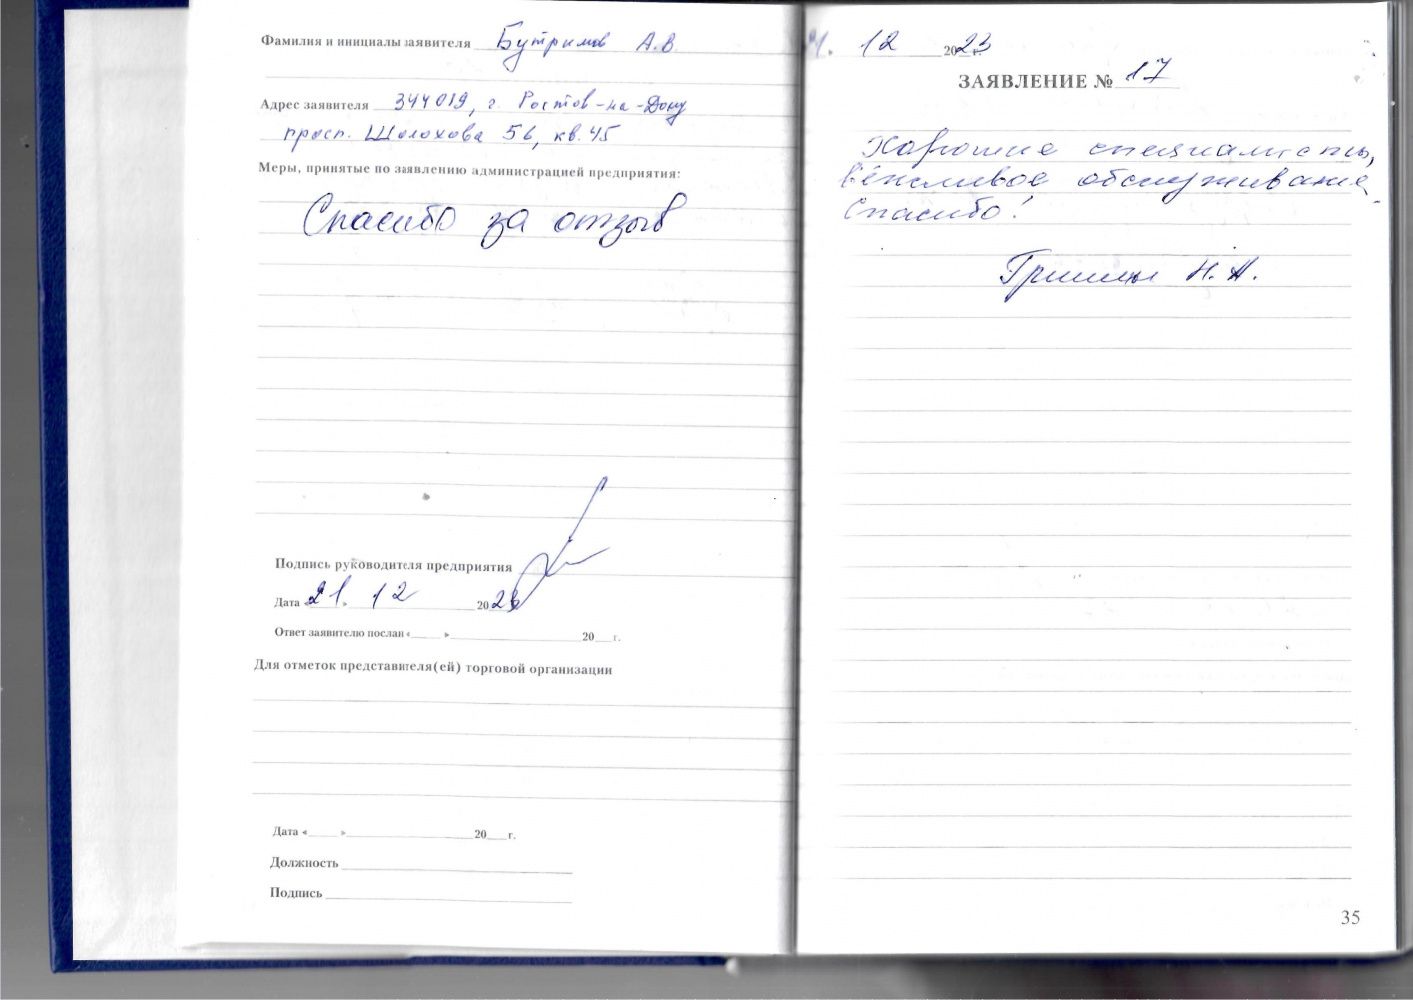 Фамилия и инициалы заявителя Бутримов А.В
Адрес заявителя 344019, г. Ростов-на-Дону
просп. Шолохова 56, кв. 45
Меры, принятые по заявлению администрацией предприятия:
Спасибо за отзыв
Подпись руководителя предприятия
Дата «21» 12 20
Ответ заявителю послан «    » 20    г.
Для отметок представителя(ей) торговой организации
Дата «    » 20    г.
Должность
Подпись
12 2023 г.
ЗАЯВЛЕНИЕ № 17
Хорошие специалисты,
вежливое обслуживание.
Спасибо!
Н. А.
35